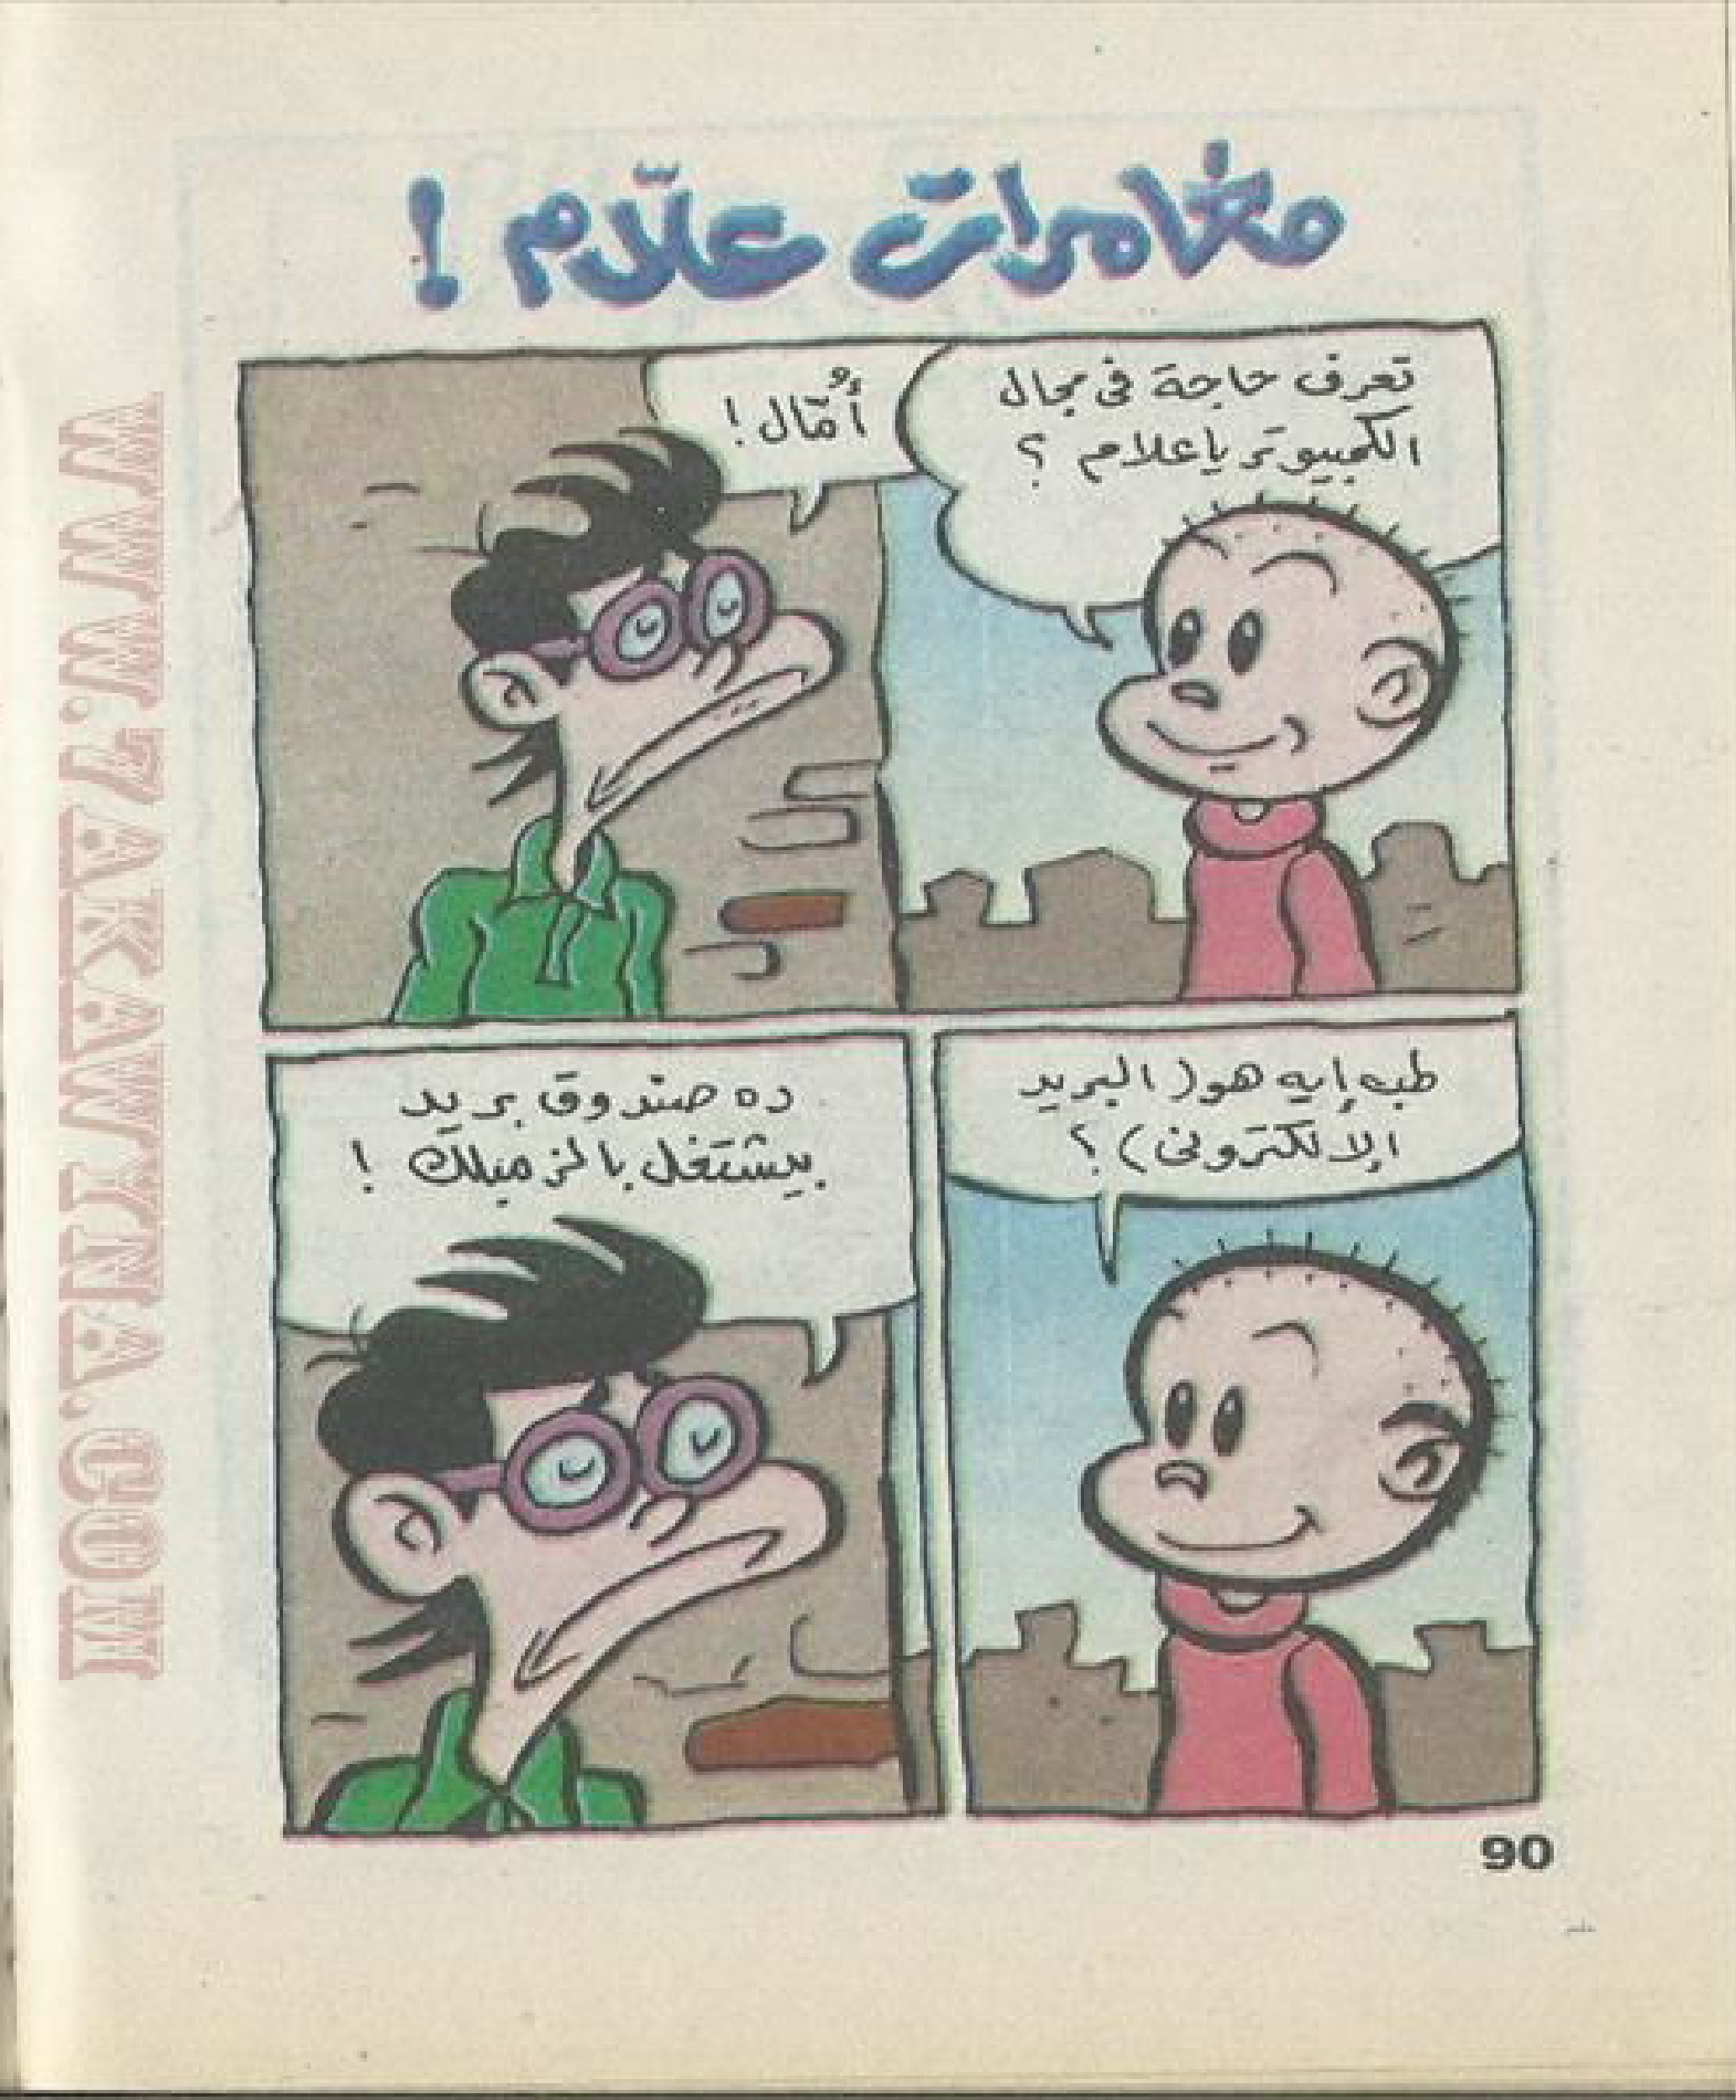 مغامرات علّام !
تعرف حاجة فى مجال
الكمبيوتر يا علام ؟
أُمّال !
طب إيه هو ( البريد
الإلكترونى ) ؟
ده صندوق بريد
بيشتغل بالزمبلك !
90
WWW.7AKAWITNA.COM